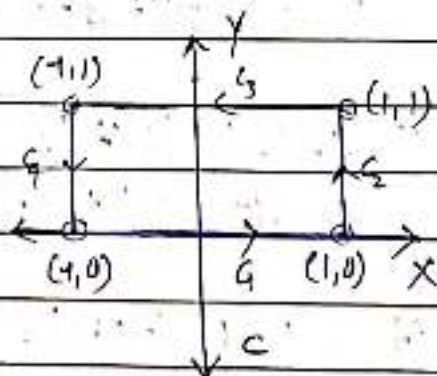 Y
(-1,1) C3 (1,1)
C4 C2
(-1,0) C1 (1,0) X
C